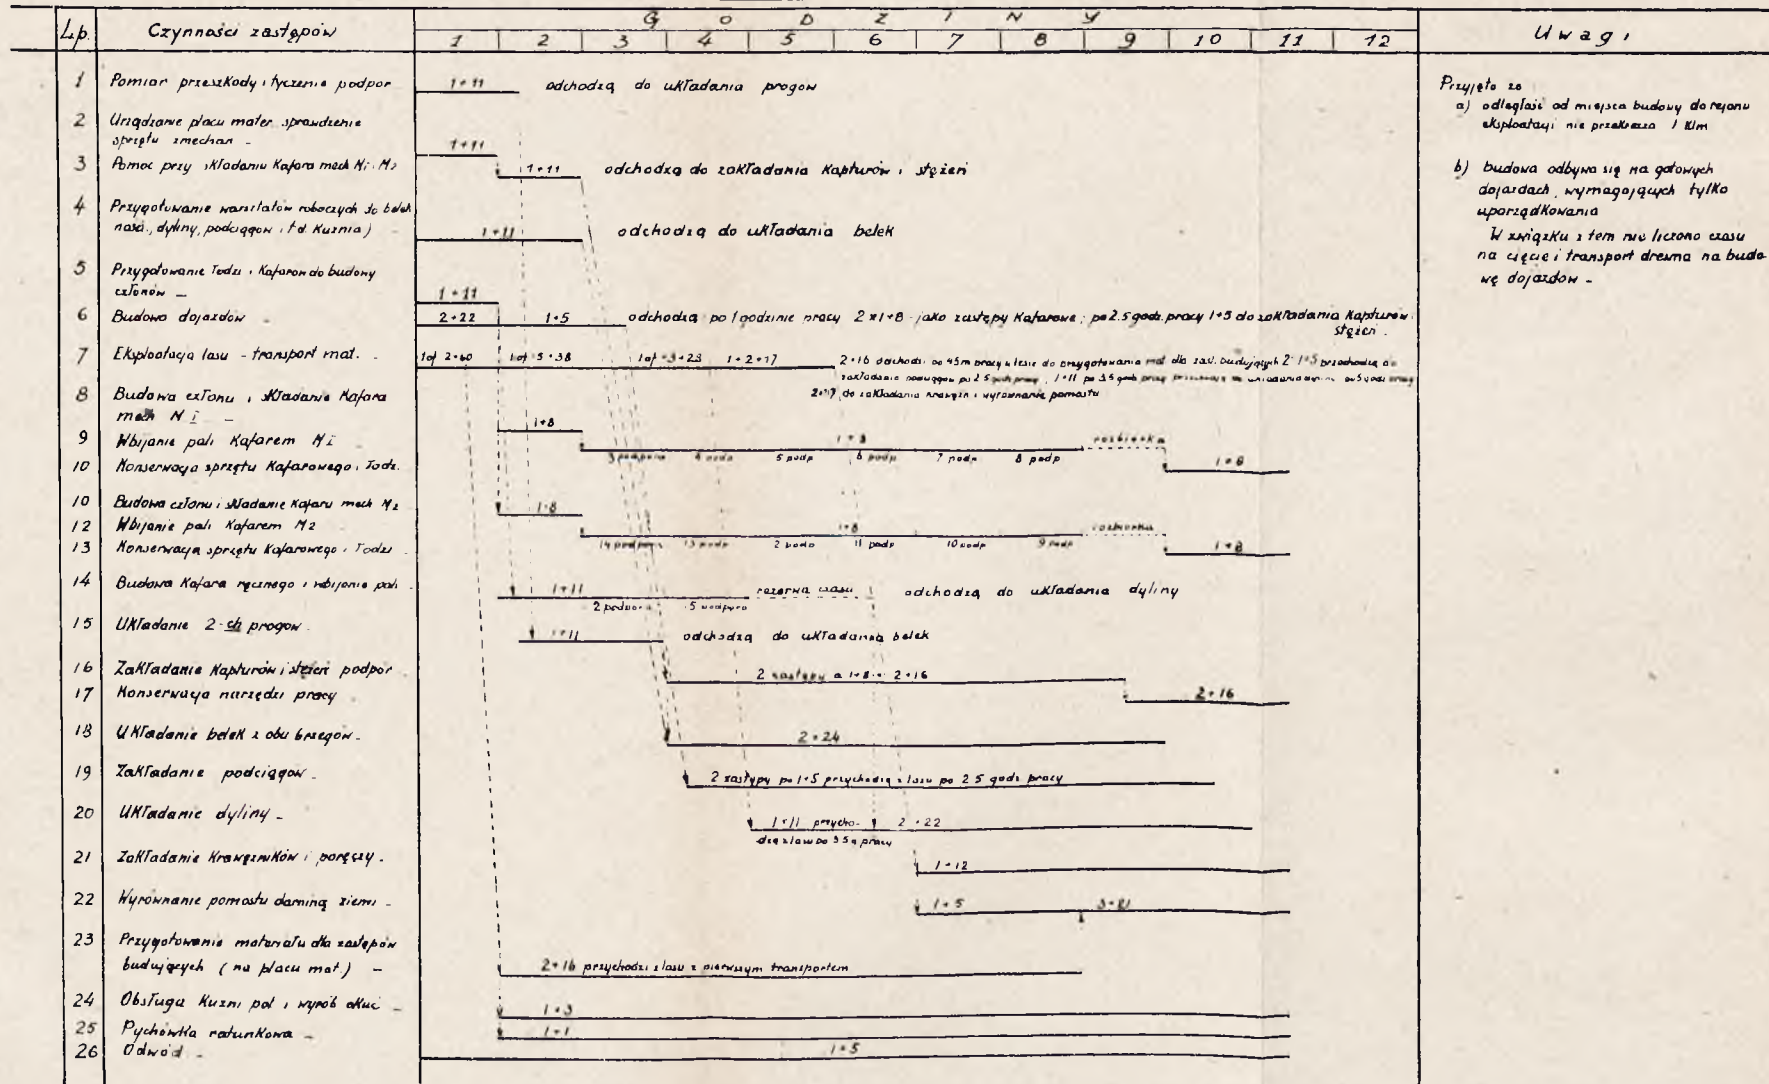 G O D Z I N Y
Lp. Czynności zastępów 1 2 3 4 5 6 7 8 9 10 11 12 Uwagi
1 Pomiar przeszkody i tyczenie podpor 1+11 odchodzą do układania progow
2 Urządzanie placu mater. sprawdzenie
sprzętu zmechan - 1+11
3 Pomoc przy składaniu Kafara mech N1. M2 1+11 odchodzą do zakładania Kapturów i stężeń
4 Przygotowanie warsztatów roboczych do belek
nośn., dyliny, podciągow i t.d. Kuźnia) 1+11 odchodzą do układania belek
5 Przygotowanie łodzi i Kafarow do budowy
członów - 1+11
6 Budowa dojazdów - 2+22 1+5 odchodzą po 1 godzinie pracy 2 x 1+8 - jako zastępy Kafarowe; po 2.5 godz. pracy 1+5 do zakładania Kapturów i
stężeń.
7 Eksploatacja lasu - transport mat. - 1 of 2+60 1 of 5+38 1 of +3+23 1+2+17 2+16 odchodzi po 45m pracy w lesie do przygotowania mat dla zast. budujących 2 1+5 przechodzą do
zakładania podciągow po 2.5 godz pracy, 1+11 po 3.5 godz pracy
2+17 do zakładania krawężn i wyrównanie pomostu
8 Budowa członu i składanie Kafara
mech N I - 1+8
9 Wbijanie pali Kafarem N I - 1+8 rozbiórka
3 podpora 4 podp 5 podp 6 podp 7 podp 8 podp
10 Konserwacja sprzętu Kafarowego i łodz. 1+8
10 Budowa członu i składanie Kafaru mech M2 1+8
12 Wbijanie pali Kafarem M2 1+8 rozbiórka
14 podpora 13 podp 2 podp 11 podp 10 podp 9 podp
13 Konserwacja sprzętu Kafarowego i łodzi 1+8
14 Budowa Kafara ręcznego i wbijanie pali 1+11 rezerwa czasu odchodzą do układania dyliny
2 podpora 5 podpora
15 Układanie 2-ch progow 1+11 odchodzą do układania belek
16 Zakładanie Kapturów i stężeń podpor 2 zastępy a 1+8 = 2+16
17 Konserwacja narzędzi pracy 2+16
18 Układanie belek z obu brzegów - 2+24
19 Zakładanie podciągow - 2 zastępy po 1+5 przychodzą z lasu po 2.5 godz pracy
20 Układanie dyliny - 1+11 przycho- 2+22
dzą z lasu po 3.5 g pracy
21 Zakładanie Krawężników i poręczy - 1+12
22 Wyrównanie pomostu darniną ziemi - 1+5 3+21
23 Przygotowanie materiału dla zastępów
budujących (na placu mat.) - 2+16 przychodzi z lasu z pierwszym transportem
24 Obsługa Kuźni pol i wyrób okuć - 1+3
25 Pychówka ratunkowa - 1+1
26 Odwód - 1+5
Przyjęto za
a) odległość od miejsca budowy do rejonu
eksploatacji nie przekracza 1 Klm
b) budowa odbywa się na gotowych
dojazdach, wymagających tylko
uporządkowania
W związku z tem nie liczono czasu
na cięcie i transport drewna na budo
wę dojazdów -